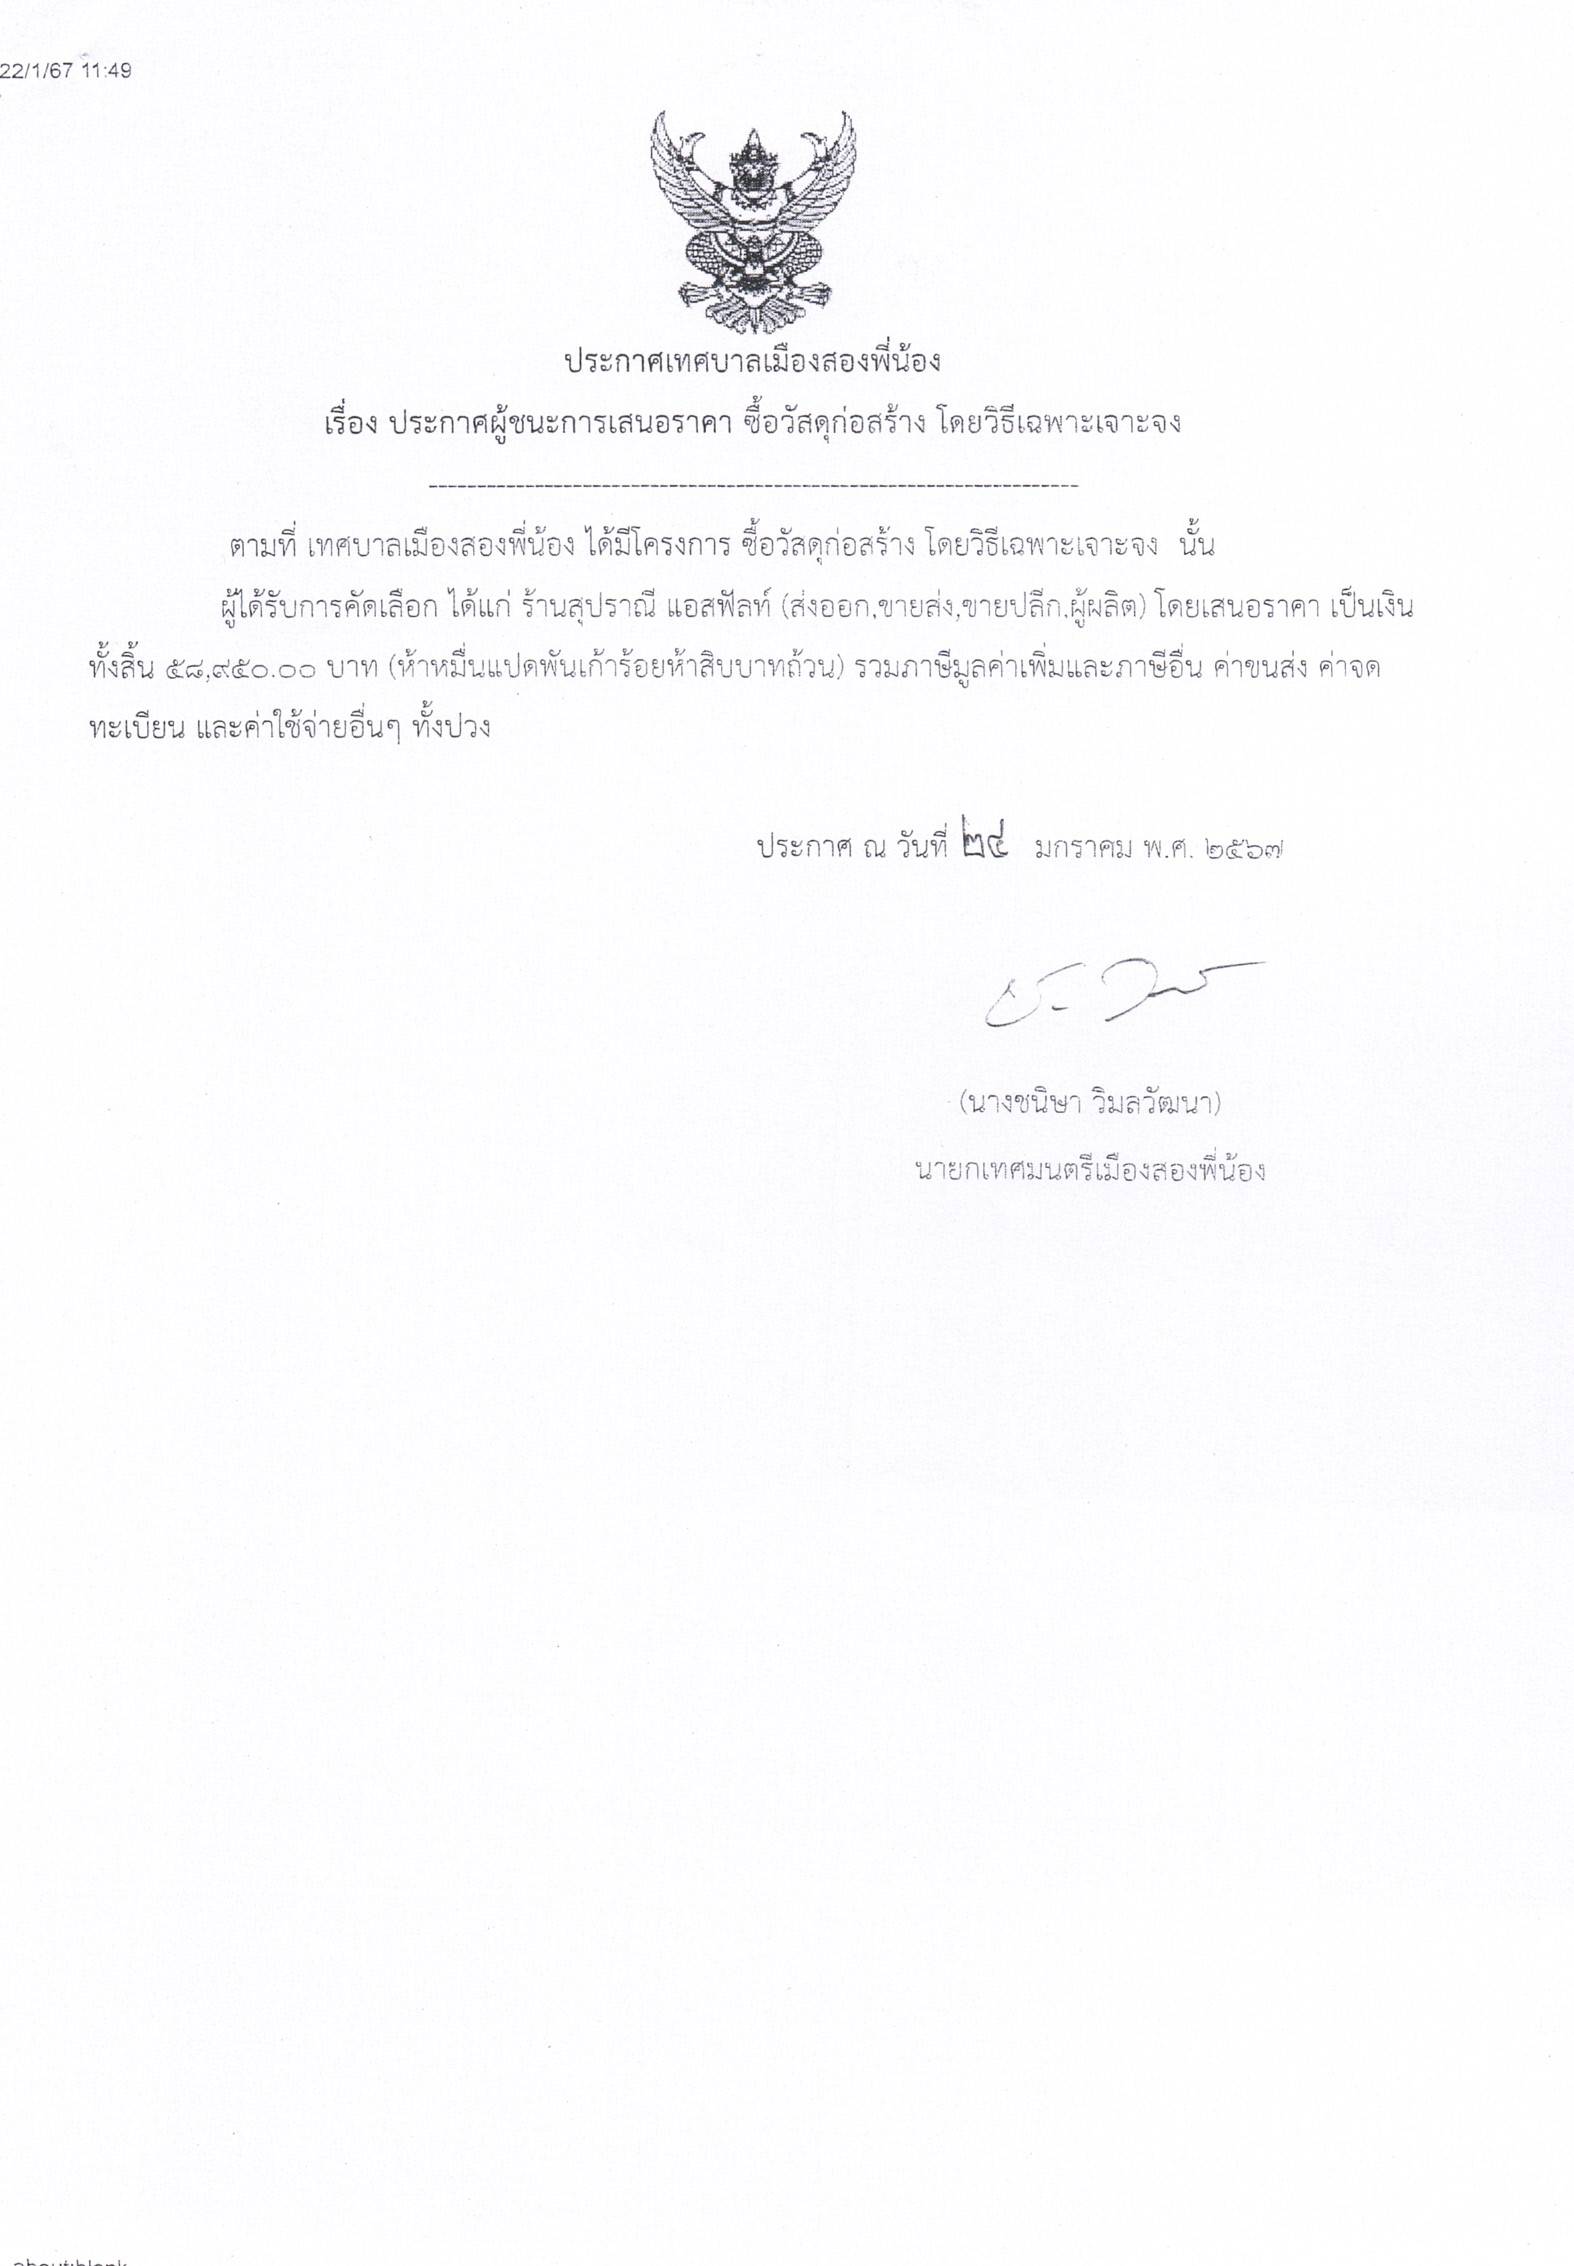 22/1/67 11:49
ประกาศเทศบาลเมืองสองพี่น้อง
เรื่อง ประกาศผู้ชนะการเสนอราคา ซื้อวัสดุก่อสร้าง โดยวิธีเฉพาะเจาะจง
--------------------------------------------------------------------
ตามที่ เทศบาลเมืองสองพี่น้อง ได้มีโครงการ ซื้อวัสดุก่อสร้าง โดยวิธีเฉพาะเจาะจง นั้น
ผู้ได้รับการคัดเลือก ได้แก่ ร้านสุปราณี แอสฟัลท์ (ส่งออก,ขายส่ง,ขายปลีก,ผู้ผลิต) โดยเสนอราคา เป็นเงิน
ทั้งสิ้น ๕๘,๙๕๐.๐๐ บาท (ห้าหมื่นแปดพันเก้าร้อยห้าสิบบาทถ้วน) รวมภาษีมูลค่าเพิ่มและภาษีอื่น ค่าขนส่ง ค่าจด
ทะเบียน และค่าใช้จ่ายอื่นๆ ทั้งปวง
ประกาศ ณ วันที่ ๒๔ มกราคม พ.ศ. ๒๕๖๗
(นางชนิษา วิมลวัฒนา)
นายกเทศมนตรีเมืองสองพี่น้อง